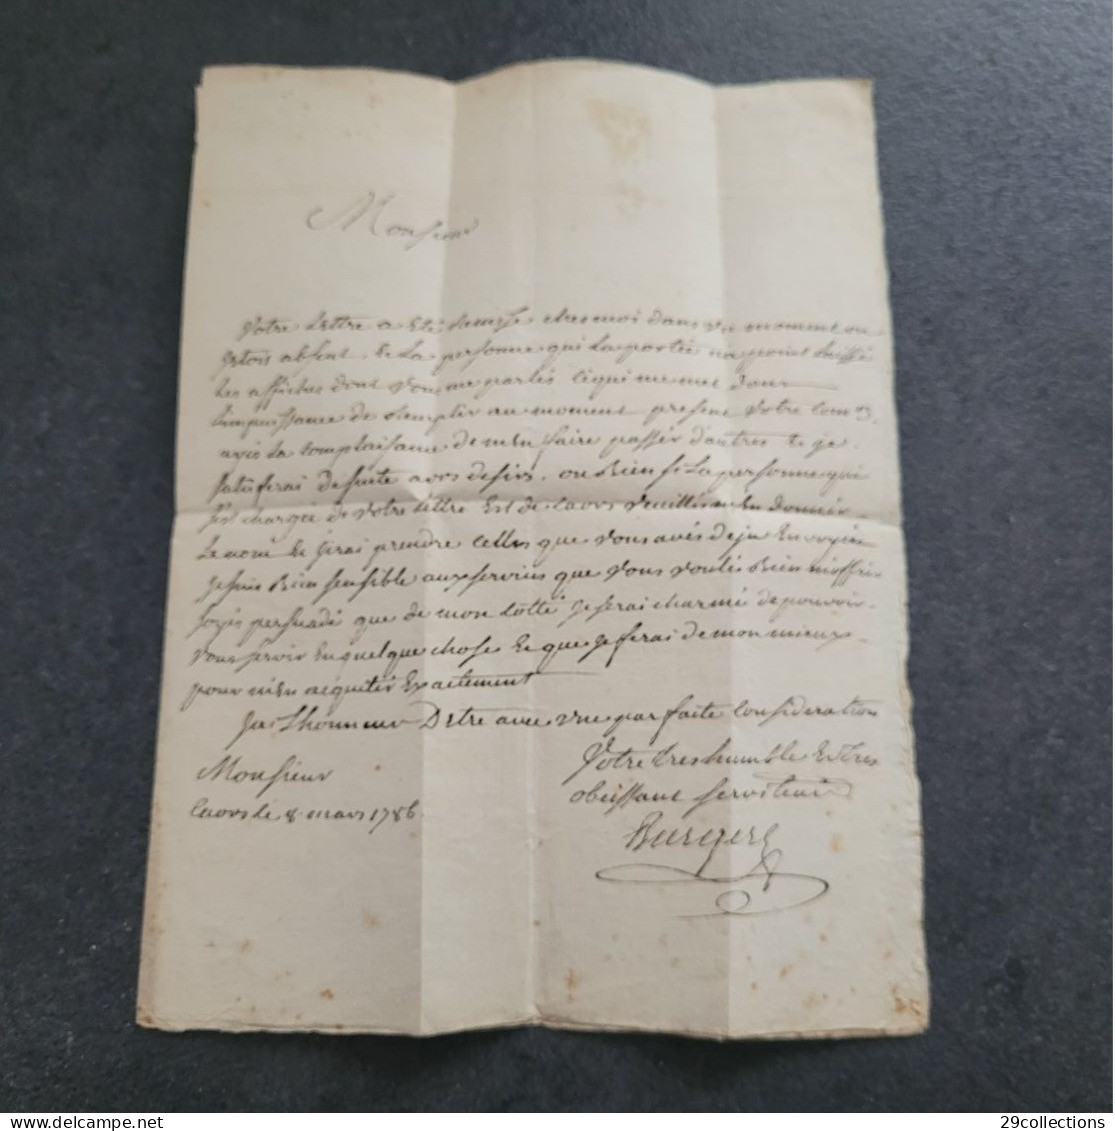 Monsieur
Votre lettre a été remise chez moi dans un moment ou
jetois absent et la personne qui la portée na point laissé
les affiches dont vous me parlés cequi me met dans
limpuissance de remplir au moment present votre
ayés la complaisance de men faire passér dautres et je
satisferai de suite a vos desirs. ou bien si la personne qui
sest chargée de votre lettre est de caors veuillés men donnér
le nom et jirai prendre celles que vous avés deja envoyées
je suis bien sensible aux services que vous voulés bien moffrir
soyés persuadé que de mon cotté je serai charmé de pouvoir
vous servir en quelque chose et que je ferai de mon mieux
pour mén acquitér exactement
Jai Lhonneur Detre avec une parfaite consideration
Monsieur
Votre tres humble et tres
obeissant serviteur
caors le 8 mars 1786
Burgere
29collections